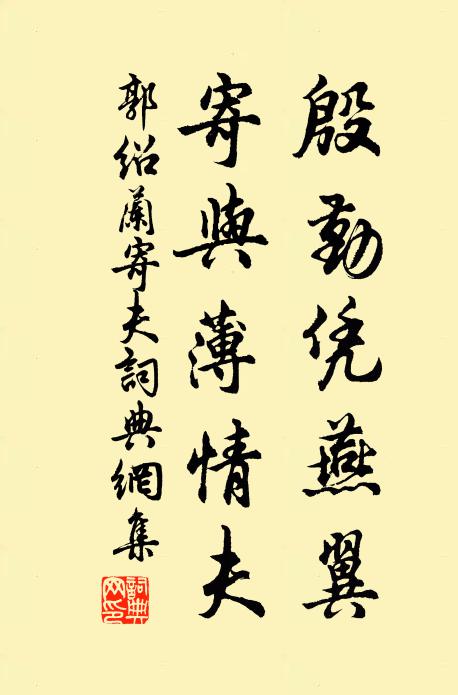 殷勤凭燕翼
寄與薄情夫
郭紹蘭寄夫詞典網集
詞典網印